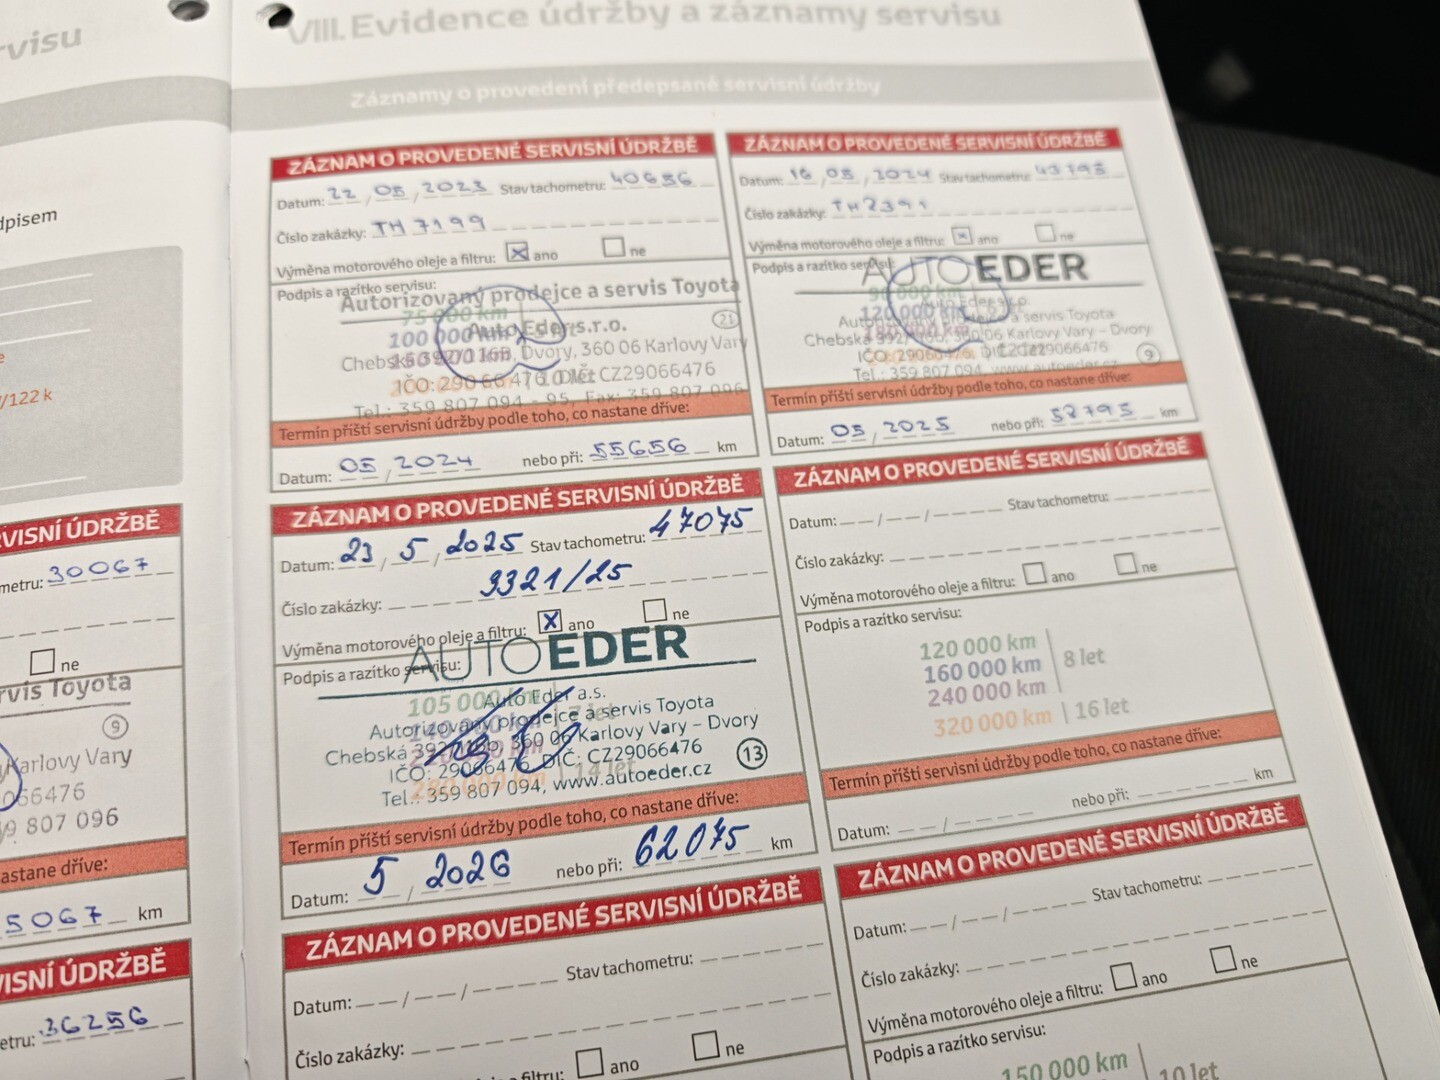 rvisu
dpisem
e
/122 k
VISNÍ ÚDRŽBĚ
metru: 30067
ne
rvis Toyota
9
Karlovy Vary
066476
9 807 096
astane dříve:
5067 km
ISNÍ ÚDRŽBĚ
etru: 36256
VIII. Evidence údržby a záznamy servisu
Záznamy o provedení předepsané servisní údržby
ZÁZNAM O PROVEDENÉ SERVISNÍ ÚDRŽBĚ
Datum: 22 / 05 / 2023 Stav tachometru: 40656
Číslo zakázky: TH 7199
Výměna motorového oleje a filtru: x ano ne
Podpis a razítko servisu:
Autorizovaný prodejce a servis Toyota
75 000 km
100 000 km
Auto Eder s.r.o.
21
Chebská 392/116B, Dvory, 360 06 Karlovy Vary
IČO: 290 66 476, DIČ: CZ29066476
Tel.: 359 807 094 - 95, Fax: 359 807 096
Termín příští servisní údržby podle toho, co nastane dříve:
Datum: 05 / 2024 nebo při: 55656 km
ZÁZNAM O PROVEDENÉ SERVISNÍ ÚDRŽBĚ
Datum: 16 / 05 / 2024 Stav tachometru: 43795
Číslo zakázky: TH2391
Výměna motorového oleje a filtru: x ano ne
Podpis a razítko servisu:
AUTOEDER
90 000 km
120 000 km
Auto Eder s.r.o.
Autorizovaný prodejce a servis Toyota
Chebská 392/116B, 360 06 Karlovy Vary – Dvory
IČO: 29066476, DIČ: CZ29066476
9
Tel.: 359 807 094, www.autoeder.cz
Termín příští servisní údržby podle toho, co nastane dříve:
Datum: 05 / 2025 nebo při: 58795 km
ZÁZNAM O PROVEDENÉ SERVISNÍ ÚDRŽBĚ
Datum: 23 / 5 / 2025 Stav tachometru: 47075
Číslo zakázky: 3321/25
Výměna motorového oleje a filtru: x ano ne
Podpis a razítko servisu:
AUTOEDER
105 000 km
Auto Eder a.s.
Autorizovaný prodejce a servis Toyota
Chebská 392/116B, 360 06 Karlovy Vary – Dvory
IČO: 29066476, DIČ: CZ29066476
14 let
13
Tel.: 359 807 094, www.autoeder.cz
Termín příští servisní údržby podle toho, co nastane dříve:
Datum: 5 / 2026 nebo při: 62075 km
ZÁZNAM O PROVEDENÉ SERVISNÍ ÚDRŽBĚ
Datum: / / Stav tachometru:
Číslo zakázky:
Výměna motorového oleje a filtru: ano ne
Podpis a razítko servisu:
120 000 km
160 000 km 8 let
240 000 km
320 000 km 16 let
Termín příští servisní údržby podle toho, co nastane dříve:
Datum: / nebo při: km
ZÁZNAM O PROVEDENÉ SERVISNÍ ÚDRŽBĚ
Datum: / / Stav tachometru:
Číslo zakázky:
ano ne
ZÁZNAM O PROVEDENÉ SERVISNÍ ÚDRŽBĚ
Datum: / / Stav tachometru:
Číslo zakázky:
Výměna motorového oleje a filtru: ano ne
Podpis a razítko servisu:
150 000 km
10 let